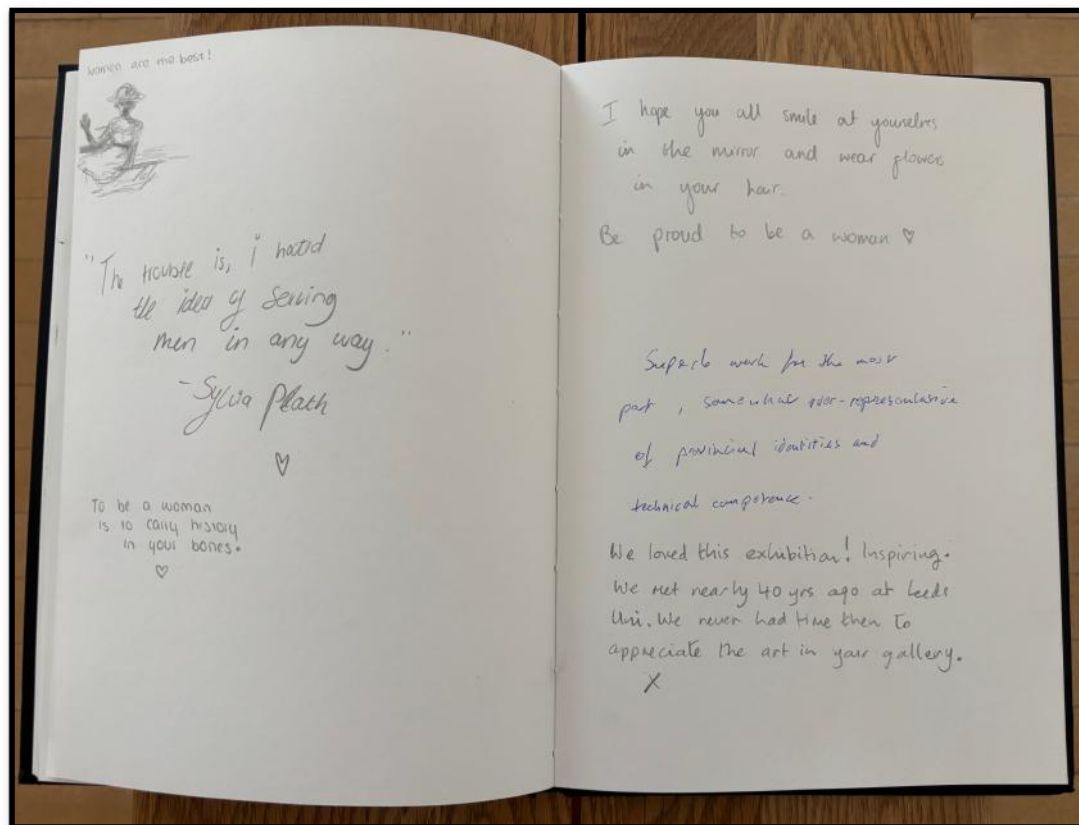 women are the best!
"The trouble is, i hated
the idea of serving
men in any way."
- Sylvia Plath
To be a woman
is to carry history
in your bones.
I hope you all smile at yourselves
in the mirror and wear flowers
in your hair.
Be proud to be a woman ♡
Superb work for the most
part, somewhat over-representative
of provincial identities and
technical competence.
We loved this exhibition! Inspiring.
We met nearly 40 yrs ago at Leeds
Uni. We never had time then to
appreciate the art in your gallery.
X